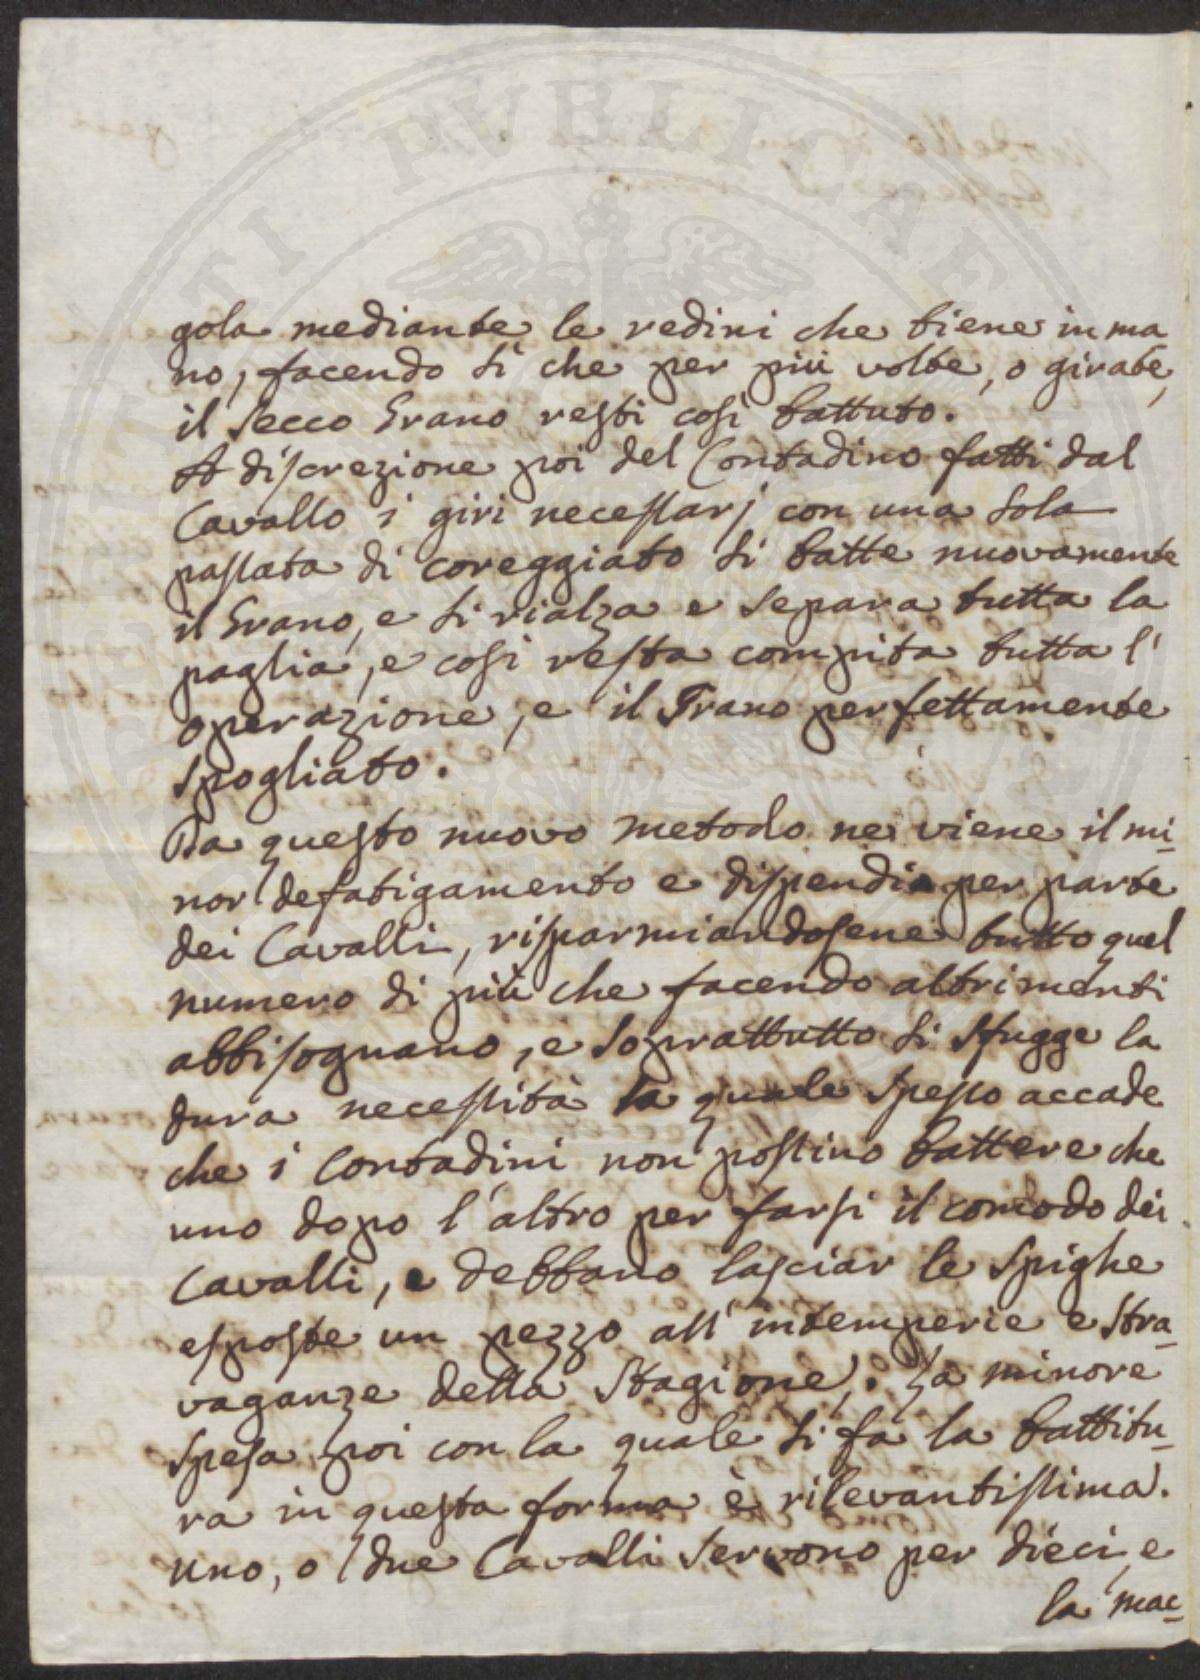 gola mediante le redini che tiene in ma
no, facendo si che per più volte, o girate,
il secco Grano resti così battuto.
A discrezione poi del Contadino fatti dal
Cavallo i giri necessarj con una sola
passata di coreggiato si batte nuovamente
il Grano, e si rialza e separa tutta la
paglia, e così resta compita tutta l'
operazione, e il Grano perfettamente
spogliato.
Da questo nuovo metodo ne viene il mi-
nor defatigamento e dispendio per parte
dei Cavalli, risparmiandosene tutto quel
numero di più che facendo altrimenti
abbisognano, e soprattutto si sfugge la
dura necessità la quale spesso accade
che i Contadini non possino battere che
uno dopo l'altro per farsi il comodo dei
Cavalli, e debbano lasciar le Spighe
esposte un pezzo all'intemperie e stra-
vaganze della Stagione. La minore
spesa poi con la quale si fa la battitu-
ra in questa forma è rilevantissima.
Uno, o due Cavalli servono per dieci, e
la mac-
PERITI PUBLICAE